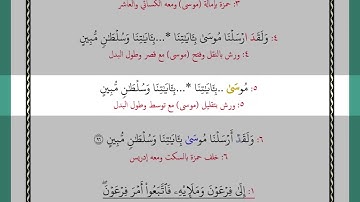 ٣: حمزة بإمالة (موسى) ومعه الكسائي والعاشر
٤: وَلَقَدَ ارْسَلْنَا مُوسَىٰ بِـَٔايَـٰتِنَا *...بِـَٔايَـٰتِنَا وَسُلْطَـٰنٍ مُّبِينٍ
٤: ورش بالنقل وفتح (موسى) مع قصر وطول البدل
٥: مُوسَىٰ ..بِـَٔايَـٰتِنَا *...بِـَٔايَـٰتِنَا وَسُلْطَـٰنٍ مُّبِينٍ
٥: ورش بتقليل (موسى) مع توسط وطول البدل
٦: وَلَقَدْ أَرْسَلْنَا مُوسَىٰ بِـَٔايَـٰتِنَا وَسُلْطَـٰنٍ مُّبِينٍ ٩٦
٦: خلف حمزة بالسكت ومعه إدريس
١: إِلَىٰ فِرْعَوْنَ وَمَلَإِيْهِۦ فَٱتَّبَعُوٓا۟ أَمْرَ فِرْعَوْنَ ۖ